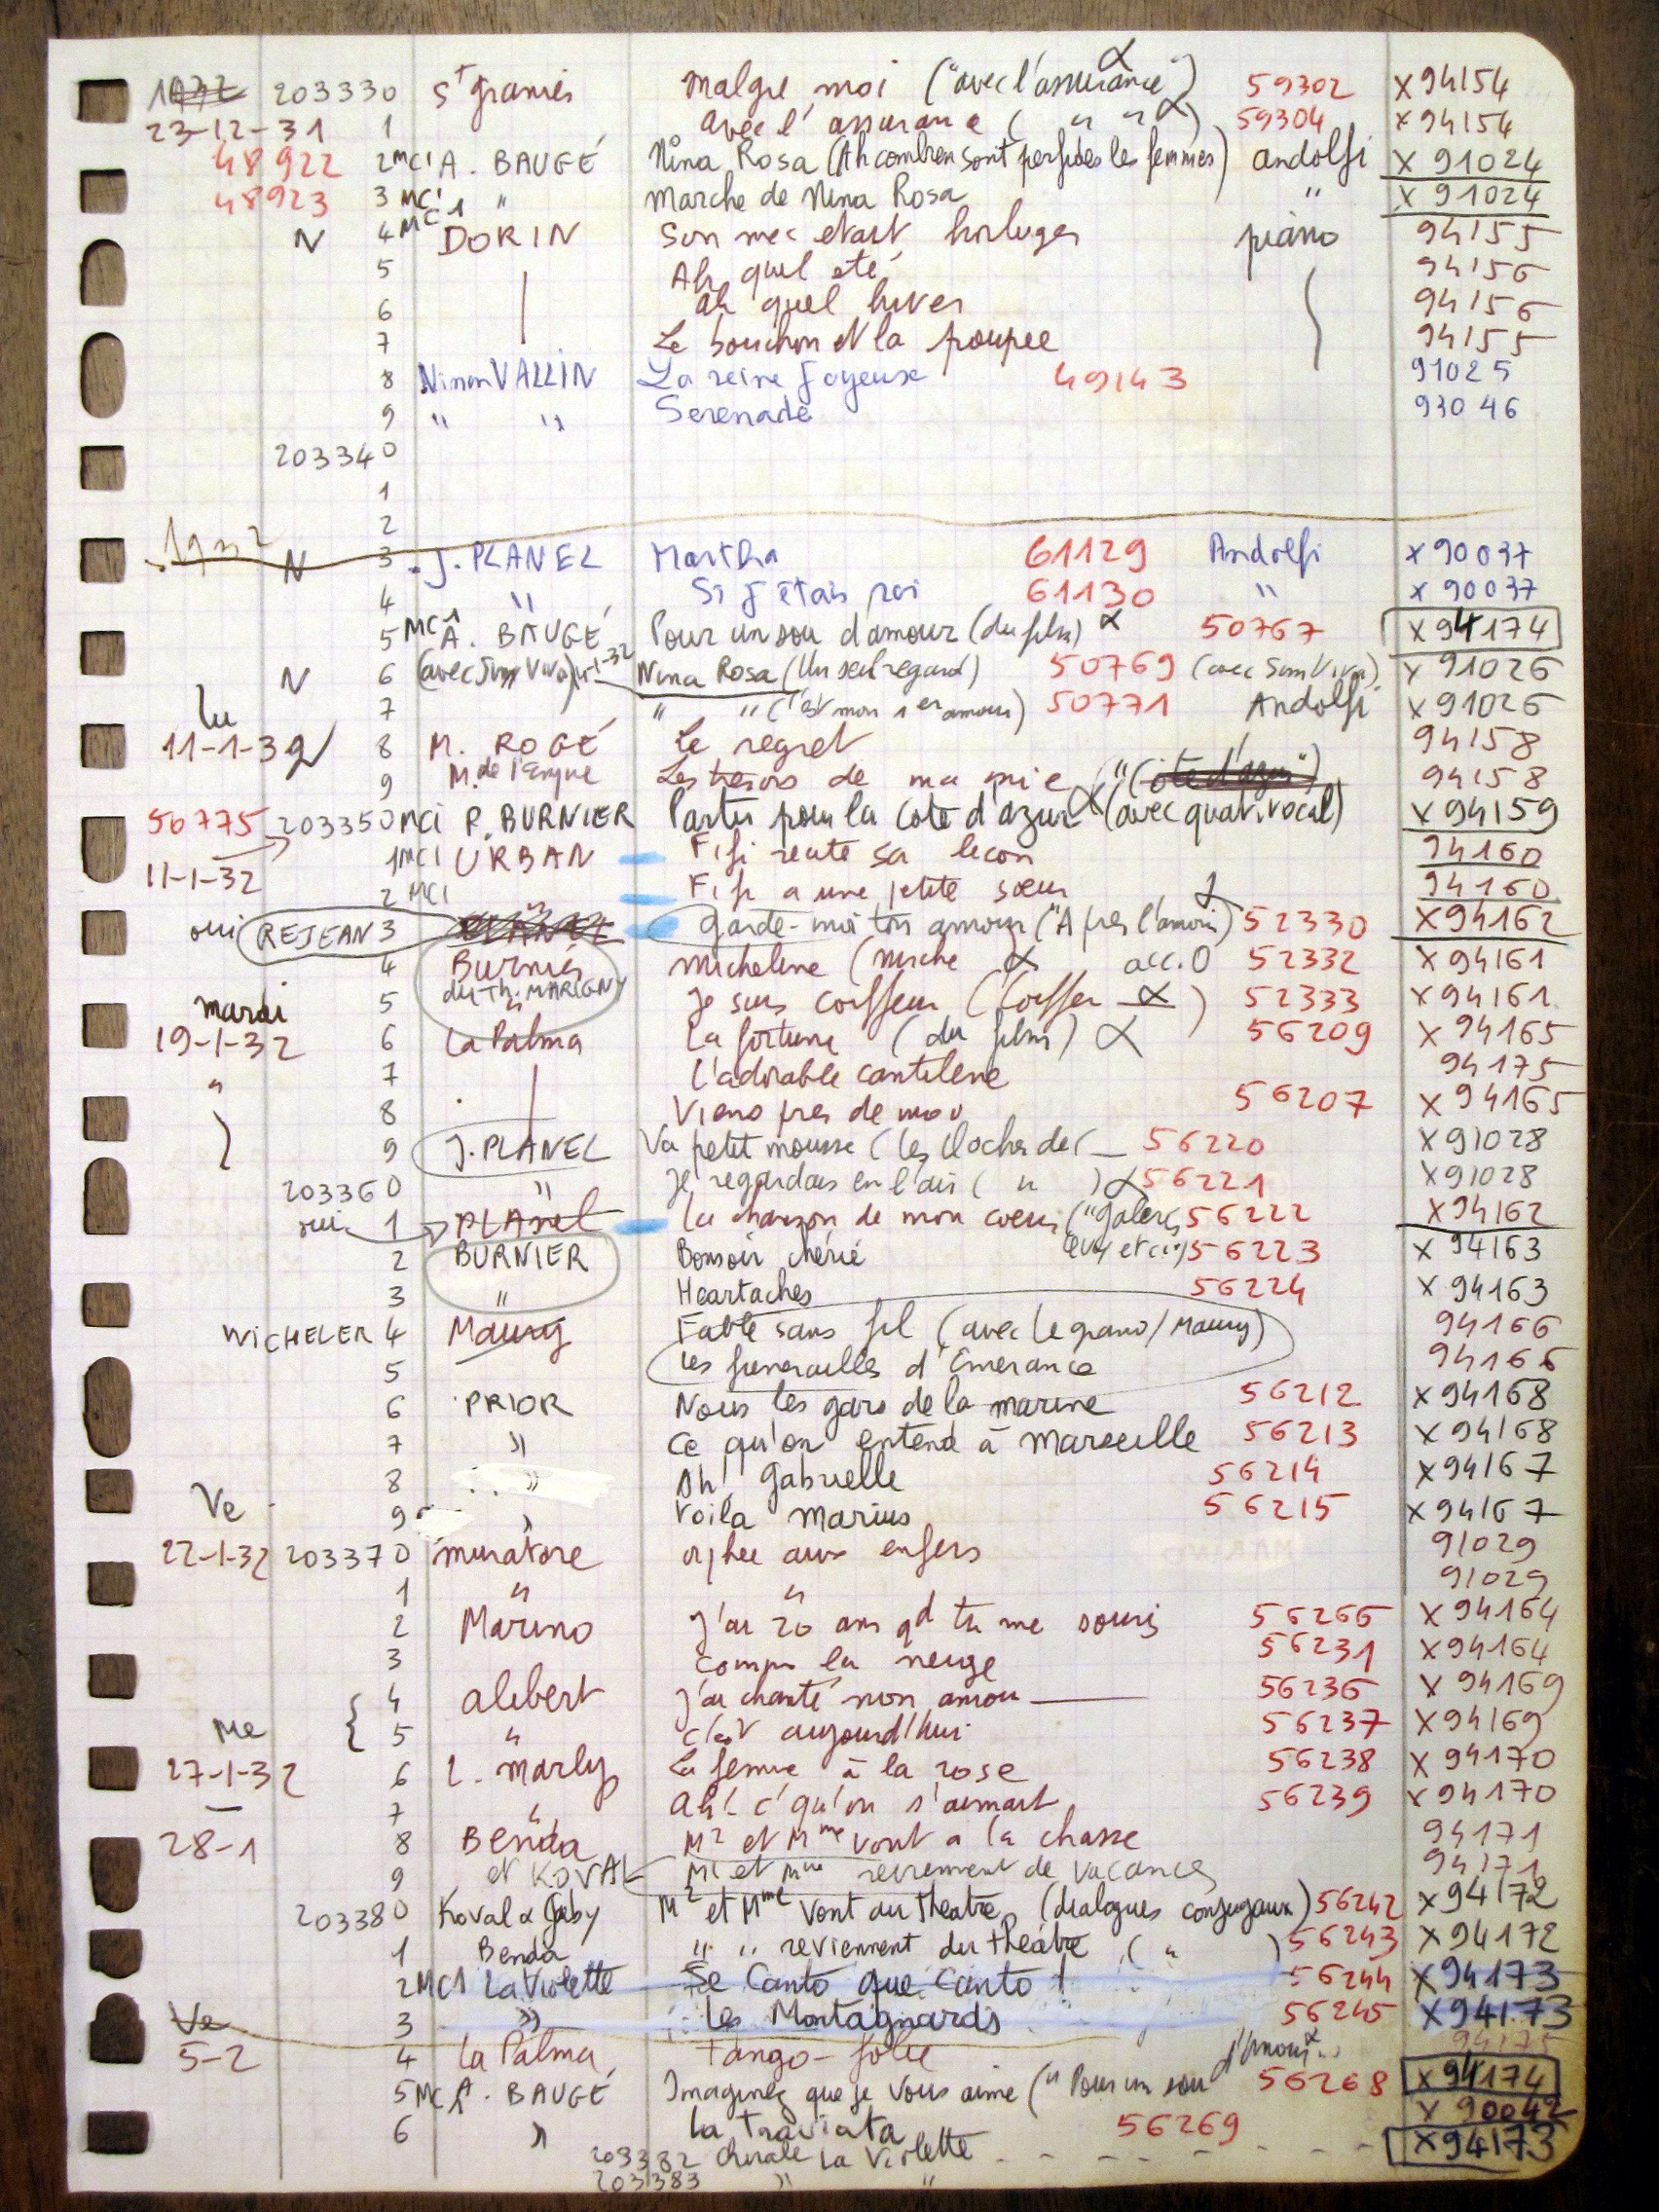 203330 St Granier Malgré moi ("avec l'assurance") α 59302 X 94154
23-12-31 1 Avec l'assurance ( " " α) 59304 X 94154
48922 2 MC1 A. BAUGÉ Nina Rosa (Ah combien sont perfides les femmes) Andolfi X 91024
48923 3 MC1 " Marche de Nina Rosa " X 91024
N 4 MC1 DORIN Son mec etait horloger piano 94155
5 Ah quel été 94156
6 Ah quel hiver 94156
7 Le bouchon et la poupee 94155
8 Ninon VALLIN La reine joyeuse 49143 91025
9 " " Serenade 93046
203340
1
2
1932 N 3 J. PLANEL Martha 61129 Andolfi X 90037
4 " Si j'étais roi 61130 " X 90037
5 MC1 A. BAUGÉ Pour un sou d'amour (du film) α 50767 X 94174
N 6 (avec Sim Viva) Nina Rosa (Un seul regard) 50769 (avec Sim Viva) X 91026
7 " " (c'est mon 1er amour) 50771 Andolfi X 91026
lu
11-1-32 8 M. ROGÉ Le regret 94158
9 M. de l'Empire Les tresors de ma mie 94158
56775 203350 MC1 P. BURNIER Partir pour la cote d'azur α (avec quat. vocal) X 94159
1 MC1 URBAN Fifi recite sa lecon 94160
11-1-32 2 MC1 Fifi a une petite soeur 94160
oui REJEAN 3 Garde-moi ton amour ("Apres l'amour") 52330 X 94162
4 Burnier Micheline ( α acc. O 52332 X 94161
du Th. MARIGNY
mardi 5 " Je suis coiffeur (Coiffeur α ) 52333 X 94161
19-1-32 6 La Palma La fortune (du film) α 56209 X 94165
" 7 L'adorable cantilene 94175
8 Viens pres de moi 56207 X 94165
9 J. PLANEL Va petit mousse (les cloches de (_ 56220 X 91028
203360 " Je regardais en l'air ( " ) α 56221 X 91028
oui 1 PLANEL La chanson de mon coeur ("Galeries 56222 X 94162
2 BURNIER Bonsoir chérié 56223 X 94163
3 " Heartaches 56224 X 94163
WICHELER 4 Maury Fable sans fil (avec Legrand/Maury) 94166
5 Les funerailles d'Emerance 94166
6 PRIOR Nous les gars de la marine 56212 X 94168
7 " Ce qu'on entend à Marseille 56213 X 94168
8 " Oh! Gabrielle 56214 X 94167
Ve 9 " Voila Marius 56215 X 94167
22-1-32 203370 Muratore Orphee aux enfers 91029
1 " " 91029
2 Marino J'ai 20 ans qd tu me souris 56266 X 94164
3 Comme la neige 56231 X 94164
4 Alibert J'ai chanté mon amour 56236 X 94169
Me 5 " C'est aujourd'hui 56237 X 94169
27-1-32 6 L. Marly La femme à la rose 56238 X 94170
7 " Ah! c'qu'on s'aimait 56239 X 94170
28-1 8 Benda Mr et Mme vont a la chasse 94171
9 et KOVAL Mr et Mme reviennent de vacances 94171
203380 Koval & Gaby Mr et Mme vont au theatre (dialogues conjugaux) 56242 X 94172
1 Benda " " reviennent du théatre ( " ) 56243 X 94172
2 MC1 La Violette Se Canto que Canto! 56244 X 94173
3 " Les Montagnards 56245 X 94173
Ve
5-2 4 La Palma Tango-folie 94175
5 MC1 A. BAUGÉ Imaginez que je vous aime ("Pour un sou d'amour α 56268 X 94174
6 " La Traviata 56269 X 90042
203382 chorale La Violette - - - - - X 94173
203383 " "